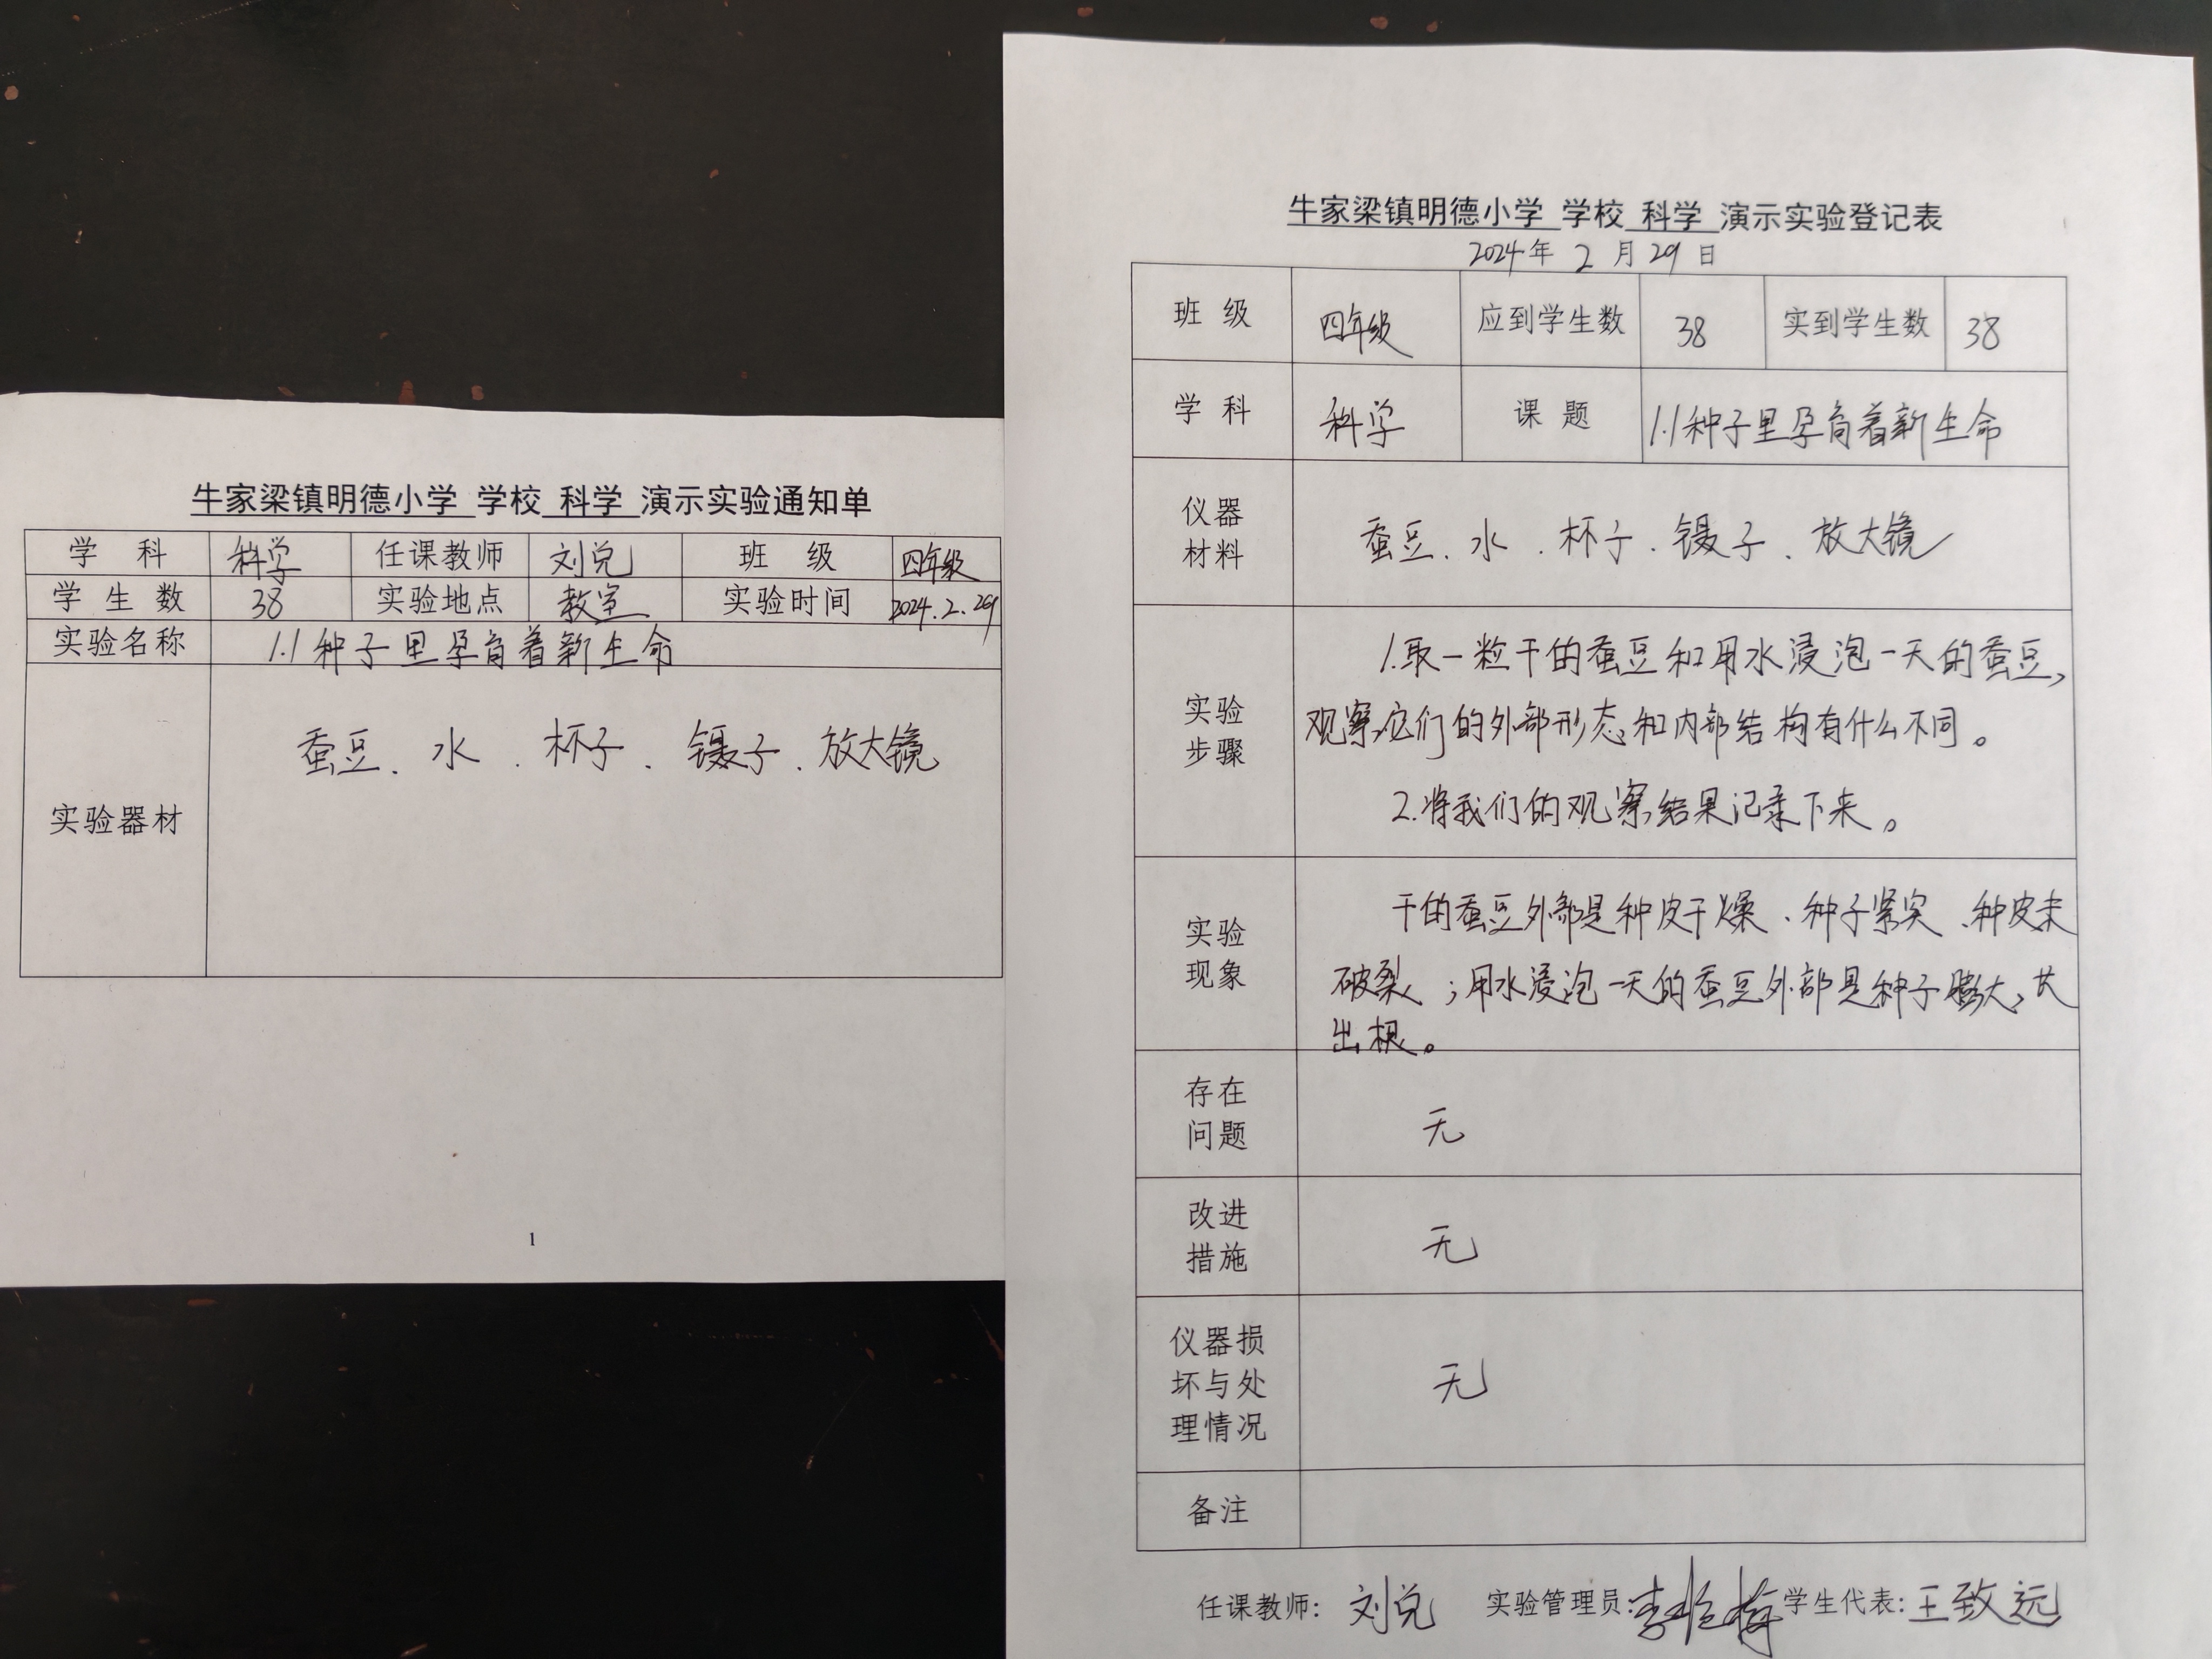 牛家梁镇明德小学 学校 科学 演示实验通知单
学 科 科学 任课教师 刘兑 班 级 四年级
学 生 数 38 实验地点 教室 实验时间 2024.2.29
实验名称 1.1种子里孕育着新生命
实验器材 蚕豆、水、杯子、镊子、放大镜
1
牛家梁镇明德小学 学校 科学 演示实验登记表
2024年 2 月 29 日
班 级 四年级 应到学生数 38 实到学生数 38
学 科 科学 课 题 1.1种子里孕育着新生命
仪器
材料
蚕豆、水、杯子、镊子、放大镜
实验
步骤
1.取一粒干的蚕豆和用水浸泡一天的蚕豆,
观察它们的外部形态和内部结构有什么不同。
2.将我们的观察结果记录下来。
实验
现象
干的蚕豆外部是种皮干燥、种子紧实、种皮未
破裂;用水浸泡一天的蚕豆外部是种子膨大,长
出根。
存在
问题
无
改进
措施
无
仪器损
坏与处
理情况
无
备注
任课教师: 刘兑 实验管理员: 学生代表:王致远